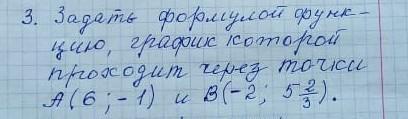 3. Задать формулой функ-
цию, график которой
проходит через точки
A(6 ; -1) и B(-2; 5 2/3).